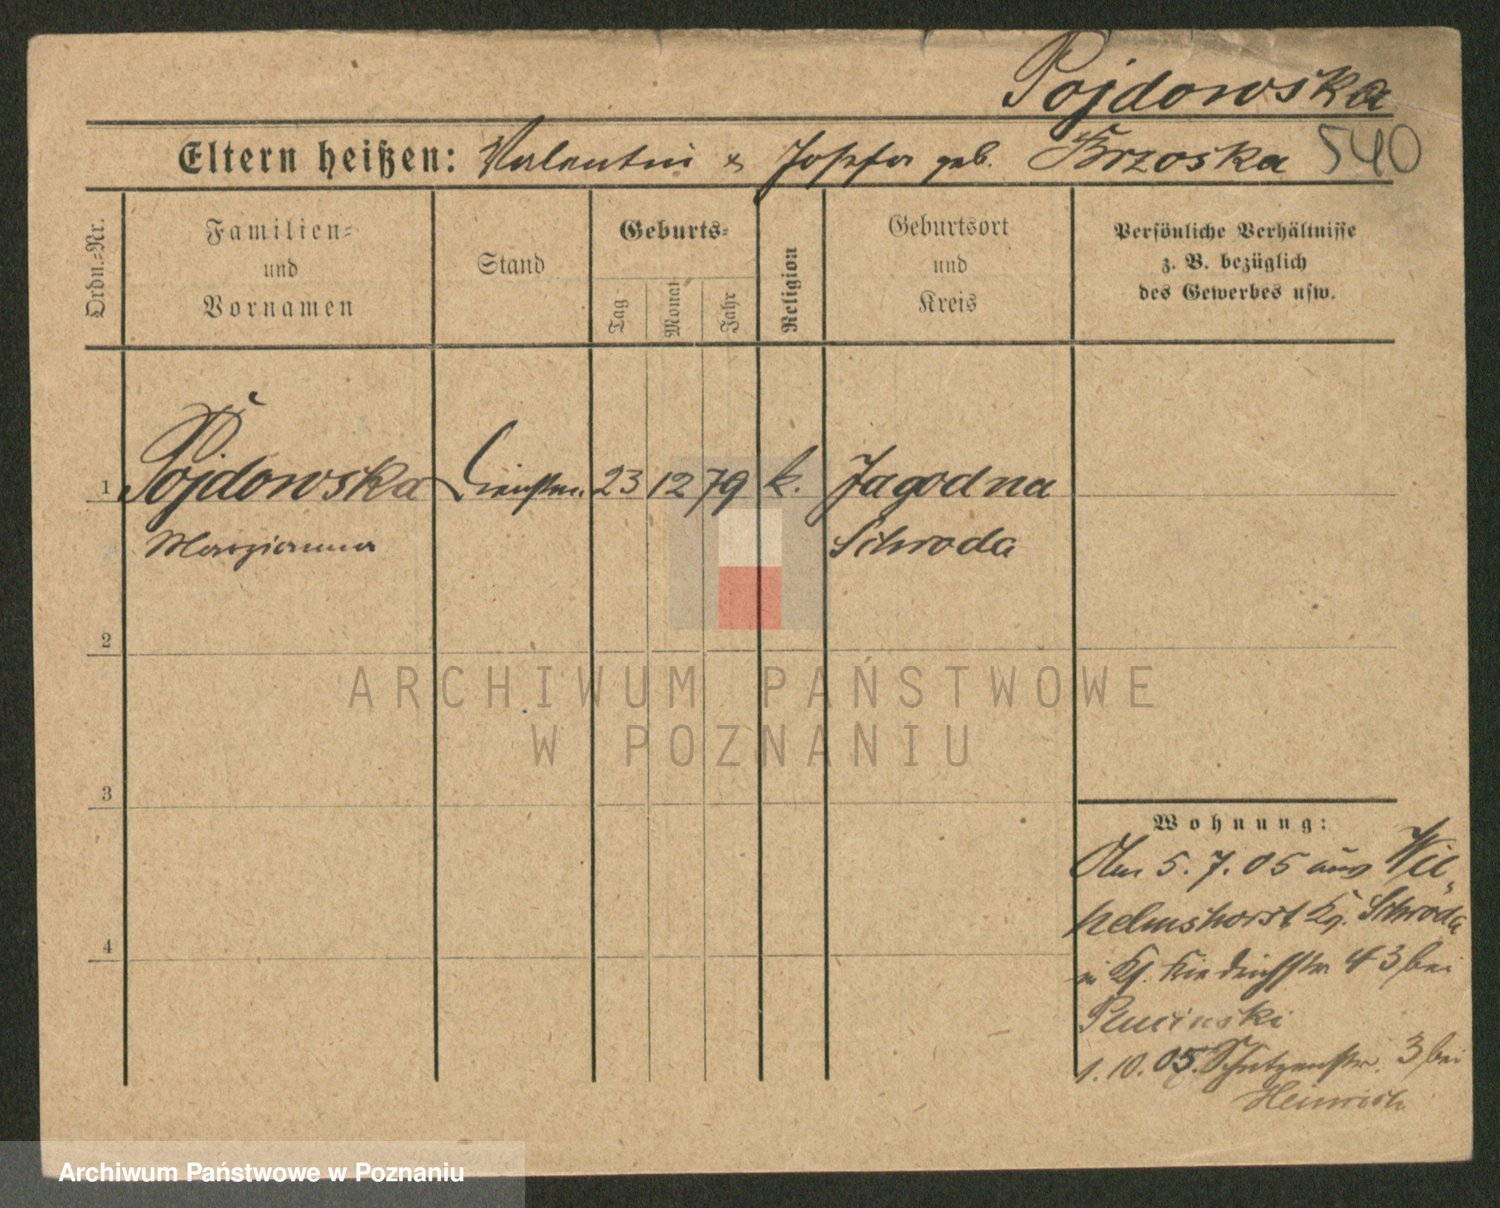 Pojdowska
Eltern heißen: Valentin & Josefa geb. Brzoska 540
Ordn.-Nr.
Familien-
und
Vornamen
Stand
Geburts-
Tag
Monat
Jahr
Religion
Geburtsort
und
Kreis
Persönliche Verhältnisse
z. B. bezüglich
des Gewerbes usw.
1 Pojdowska Dienstm. 23 12 79 k. Jagodna
Marzianna Schroda
2
ARCHIWUM PAŃSTWOWE
W POZNANIU
3
Wohnung:
Am 5.7.05 aus Wil-
helmshorst Kr. Schroda
in Friedrichstr 43 bei
Plucinski
4
1.10.05. Schützenstr. 3 bei
Heinrich
Archiwum Państwowe w Poznaniu